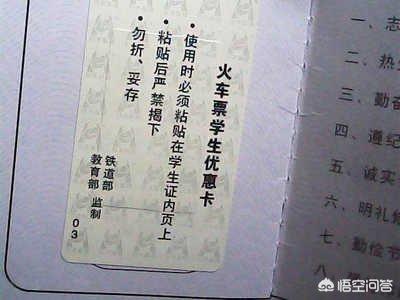 火车票学生优惠卡
• 使用时必须粘贴在学生证内页上
• 粘贴后严禁揭下
• 勿折、妥存
铁道部
教育部 监制
03
一、志
二、热
三、勤奋
四、遵纪
五、诚实
六、明礼修
七、勤俭节
八、
悟空问答